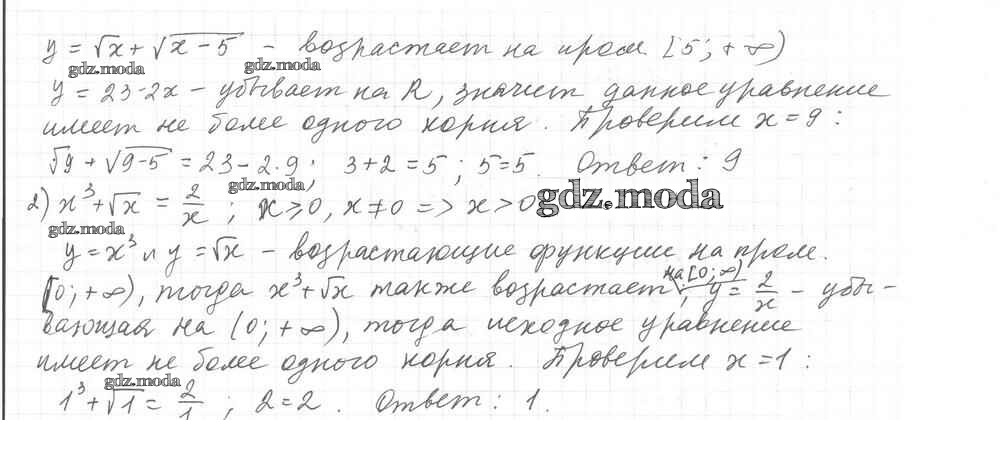 y = √x + √(x-5) - возрастает на пром. [5; +∞)
gdz.moda gdz.moda
y = 23-2x - убывает на R, значит данное уравнение
имеет не более одного корня. Проверим x=9:
√9 + √(9-5) = 23-2·9; 3+2=5; 5=5. Ответ: 9
gdz.moda
2) x³+√x = 2/x; x⩾0, x≠0 => x>0 gdz.moda
gdz.moda
y=x³ и y=√x - возрастающие функции на пром.
на [0; ∞)
[0; +∞), тогда x³+√x также возрастает; y = 2/x - убы-
вающая на (0; +∞), тогда исходное уравнение
имеет не более одного корня. Проверим x=1:
gdz.moda
1³+√1 = 2/1; 2=2. Ответ: 1.